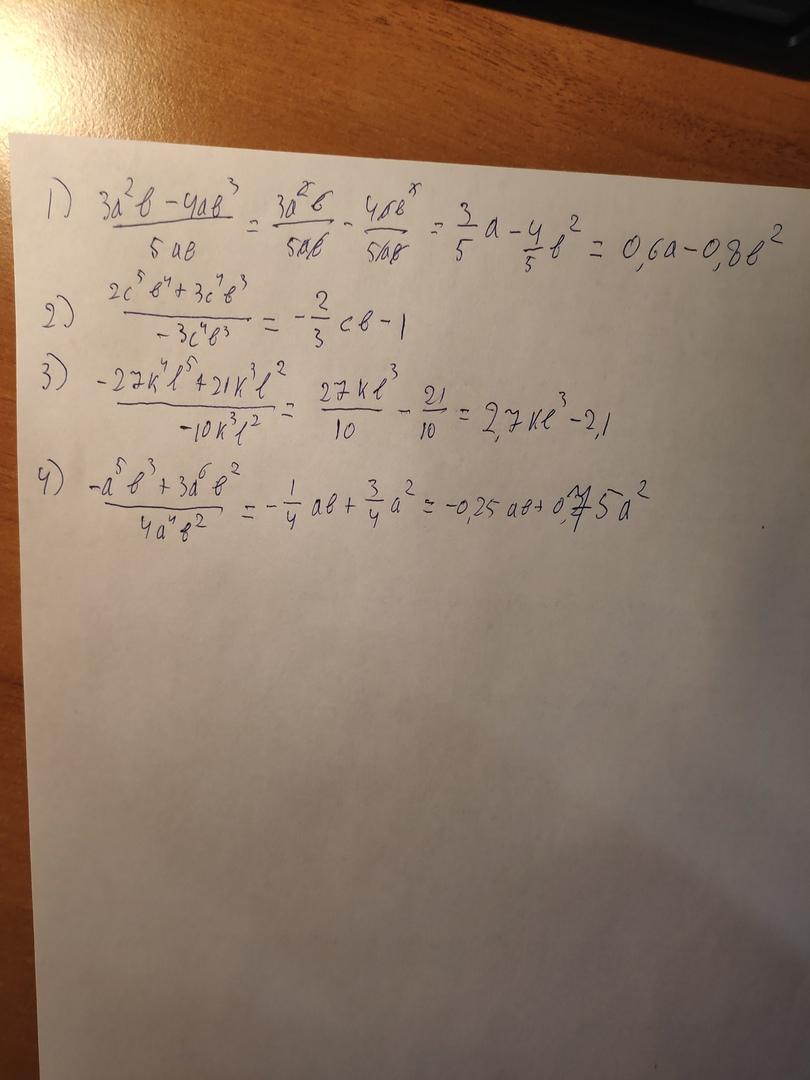 1) (3a²в - 4ав³)/(5ав) = (3a²в)/(5ав) - (4ав³)/(5ав) = 3/5 a - 4/5 в² = 0,6a - 0,8в²
2) (2c⁵в⁴ + 3c⁴в³)/(-3c⁴в³) = -2/3 cв - 1
3) (-27k⁴l⁵ + 21k³l²)/(-10k³l²) = (27kl³)/10 - 21/10 = 2,7kl³ - 2,1
4) (-a⁵в³ + 3a⁶в²)/(4a⁴в²) = -1/4 aв + 3/4 a² = -0,25aв + 0,75a²